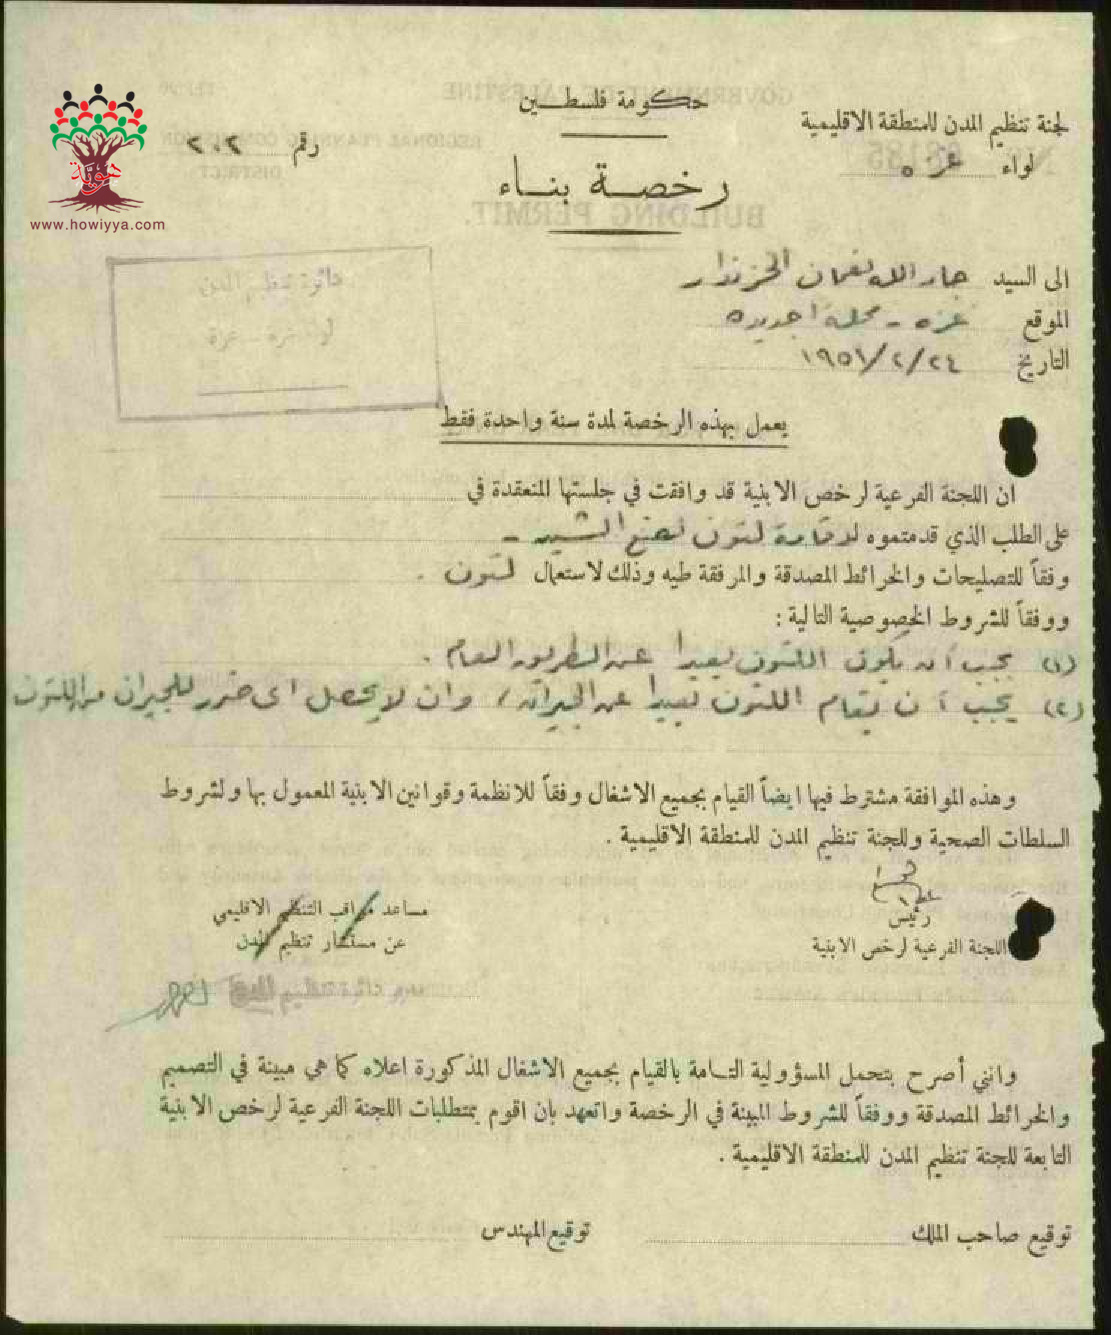 حكومة فلسطين
لجنة تنظيم المدن للمنطقة الاقليمية
لواء غزه
رقم ٢٠٢
رخصة بناء
هوية
www.howiyya.com
الى السيد جار الله نعمان الخزندار
الموقع غزه - محلة اجديده
التاريخ ٢٤/٢/١٩٥١
دائرة تنظيم المدن
لواء غزه - غزة
يعمل بهذه الرخصة لمدة سنة واحدة فقط
ان اللجنة الفرعية لرخص الابنية قد وافقت في جلستها المنعقدة في
على الطلب الذي قدمتموه لاقامة لتون لصنع الشيد -
وفقاً للتصليحات والخرائط المصدقة والمرفقة طيه وذلك لاستعمال لتون .
ووفقاً للشروط الخصوصية التالية :
(١) يجب أن يكون اللتون بعيدا عن الطريق العام .
(٢) يجب أن يقام اللتون بعيدا عن الجيران ، وان لا يحصل اى ضرر للجيران من اللتون
وهذه الموافقة مشترط فيها ايضاً القيام بجميع الاشغال وفقاً للانظمة وقوانين الابنية المعمول بها ولشروط
السلطات الصحية وللجنة تنظيم المدن للمنطقة الاقليمية .
رئيس
اللجنة الفرعية لرخص الابنية
مساعد مراقب التنظيم الاقليمي
عن مستشار تنظيم المدن
مدير دائرة تنظيم المدن
وانني أصرح بتحمل المسؤولية التامة بالقيام بجميع الاشغال المذكورة اعلاه كما هي مبينة في التصميم
والخرائط المصدقة ووفقاً للشروط المبينة في الرخصة واتعهد بان اقوم بمتطلبات اللجنة الفرعية لرخص الابنية
التابعة للجنة تنظيم المدن للمنطقة الاقليمية .
توقيع صاحب الملك
توقيع المهندس